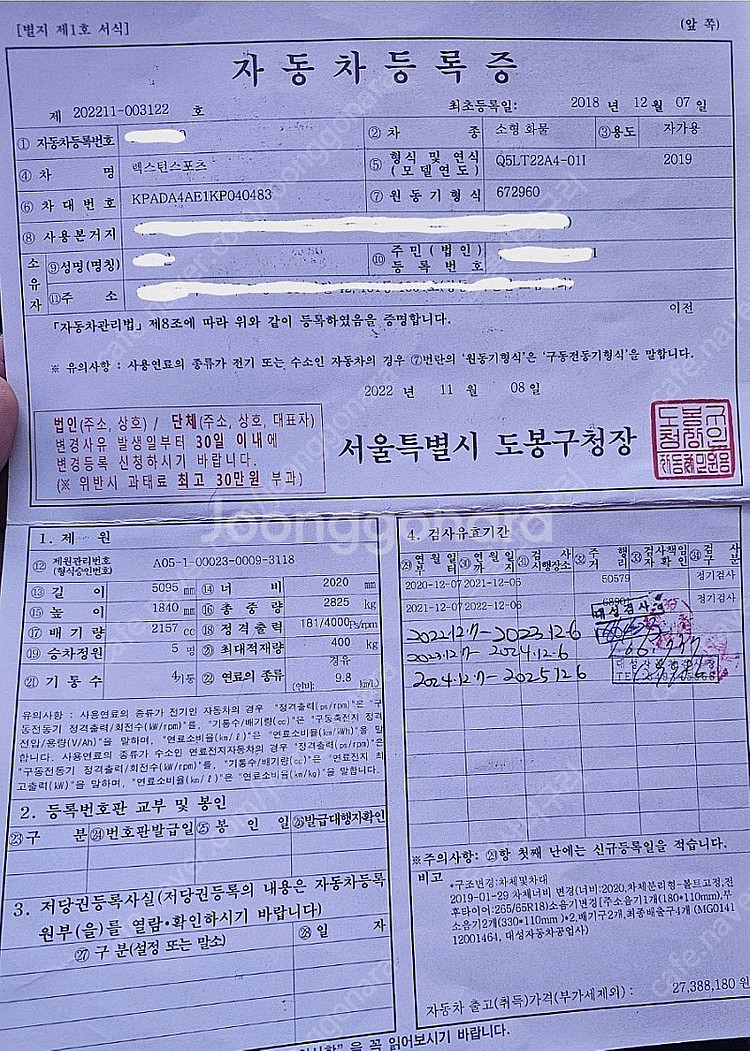 [별지 제1호 서식]
(앞 쪽)
자동차등록증
제 202211-003122 호
최초등록일: 2018 년 12 월 07 일
① 자동차등록번호
② 차 종 소형 화물 ③용도 자가용
④ 차 명 렉스턴스포츠
⑤ 형식 및 연식 (모델연도) Q5LT22A4-01I 2019
⑥ 차대번호 KPADA4AE1KP040483
⑦ 원동기형식 672960
⑧ 사용본거지
소유자
⑨성명(명칭)
⑩ 주민(법인)등록번호
⑪주 소
이전
「자동차관리법」 제8조에 따라 위와 같이 등록하였음을 증명합니다.
※ 유의사항 : 사용연료의 종류가 전기 또는 수소인 자동차의 경우 ⑦번란의 '원동기형식'은 '구동전동기형식'을 말합니다.
2022 년 11 월 08 일
법인(주소, 상호) / 단체(주소, 상호, 대표자)
변경사유 발생일부터 30일 이내에
변경등록 신청하시기 바랍니다.
(※ 위반시 과태료 최고 30만원 부과)
서울특별시 도봉구청장
Joonggonara
1. 제 원
⑫ 제원관리번호 (형식승인번호) A05-1-00023-0009-3118
⑬ 길 이 5095 mm ⑭ 너 비 2020 mm
⑮ 높 이 1840 mm ⑯ 총 중 량 2825 kg
⑰ 배 기 량 2157 cc ⑱ 정격출력 181/4000 Ps/rpm
⑲ 승차정원 5 명 ⑳ 최대적재량 400 kg
㉑ 기 통 수 4기통 ㉒ 연료의 종류 경유 (연비) 9.8 km/L
유의사항 : 사용연료의 종류가 전기인 자동차의 경우 "정격출력(ps/rpm)"은 "구
동전동기 정격출력/회전수(kW/rpm)"를, "기통수/배기량(cc)"은 "구동축전지 정격
전압/용량(V/Ah)"을 말하며, "연료소비율(km/ℓ)"은 "연료소비율(km/kWh)"을 말
합니다. 사용연료의 종류가 수소인 연료전지자동차의 경우 "정격출력(ps/rpm)"은
"구동전동기 정격출력/회전수(kW/rpm)"를, "기통수/배기량(cc)"은 "연료전지 최
고출력(kW)"을 말하며, "연료소비율(km/ℓ)"은 "연료소비율(km/kg)"을 말합니다.
2. 등록번호판 교부 및 봉인
㉓구 분 ㉔번호판발급일 ㉕봉 인 일 ㉖발급대행자확인
3. 저당권등록사실(저당권등록의 내용은 자동차등록
원부(을)를 열람•확인하시기 바랍니다)
㉗ 구 분(설정 또는 말소) ㉘ 일 자
4. 검사유효기간
㉙연월일부터 ㉚연월일까지 ㉛검사시행장소 ㉜주행거리 ㉝검사책임자확인 ㉞검사구분
2020-12-07 2021-12-06 50579 정기검사
2021-12-07 2022-12-06 정기검사
2022.12.7-2023.12.6
2023.12.7-2024.12.6
2024.12.7-2025.12.6
※주의사항: ㉙항 첫째 난에는 신규등록일을 적습니다.
비고
*구조변경:차체및차대
2019-01-29 차체너비 변경(너비:2020,차체분리형-볼트고정,전
후타이어:265/65R18)소음기변경[주소음기1개(180*110mm),부
소음기2개(330*110mm)*2,배기구2개,최종배출구4개 (MG0141
12001464, 대성자동차공업사)
자동차 출고(취득)가격(부가세제외) : 27,388,180 원
을 꼭 읽어보시기 바랍니다.